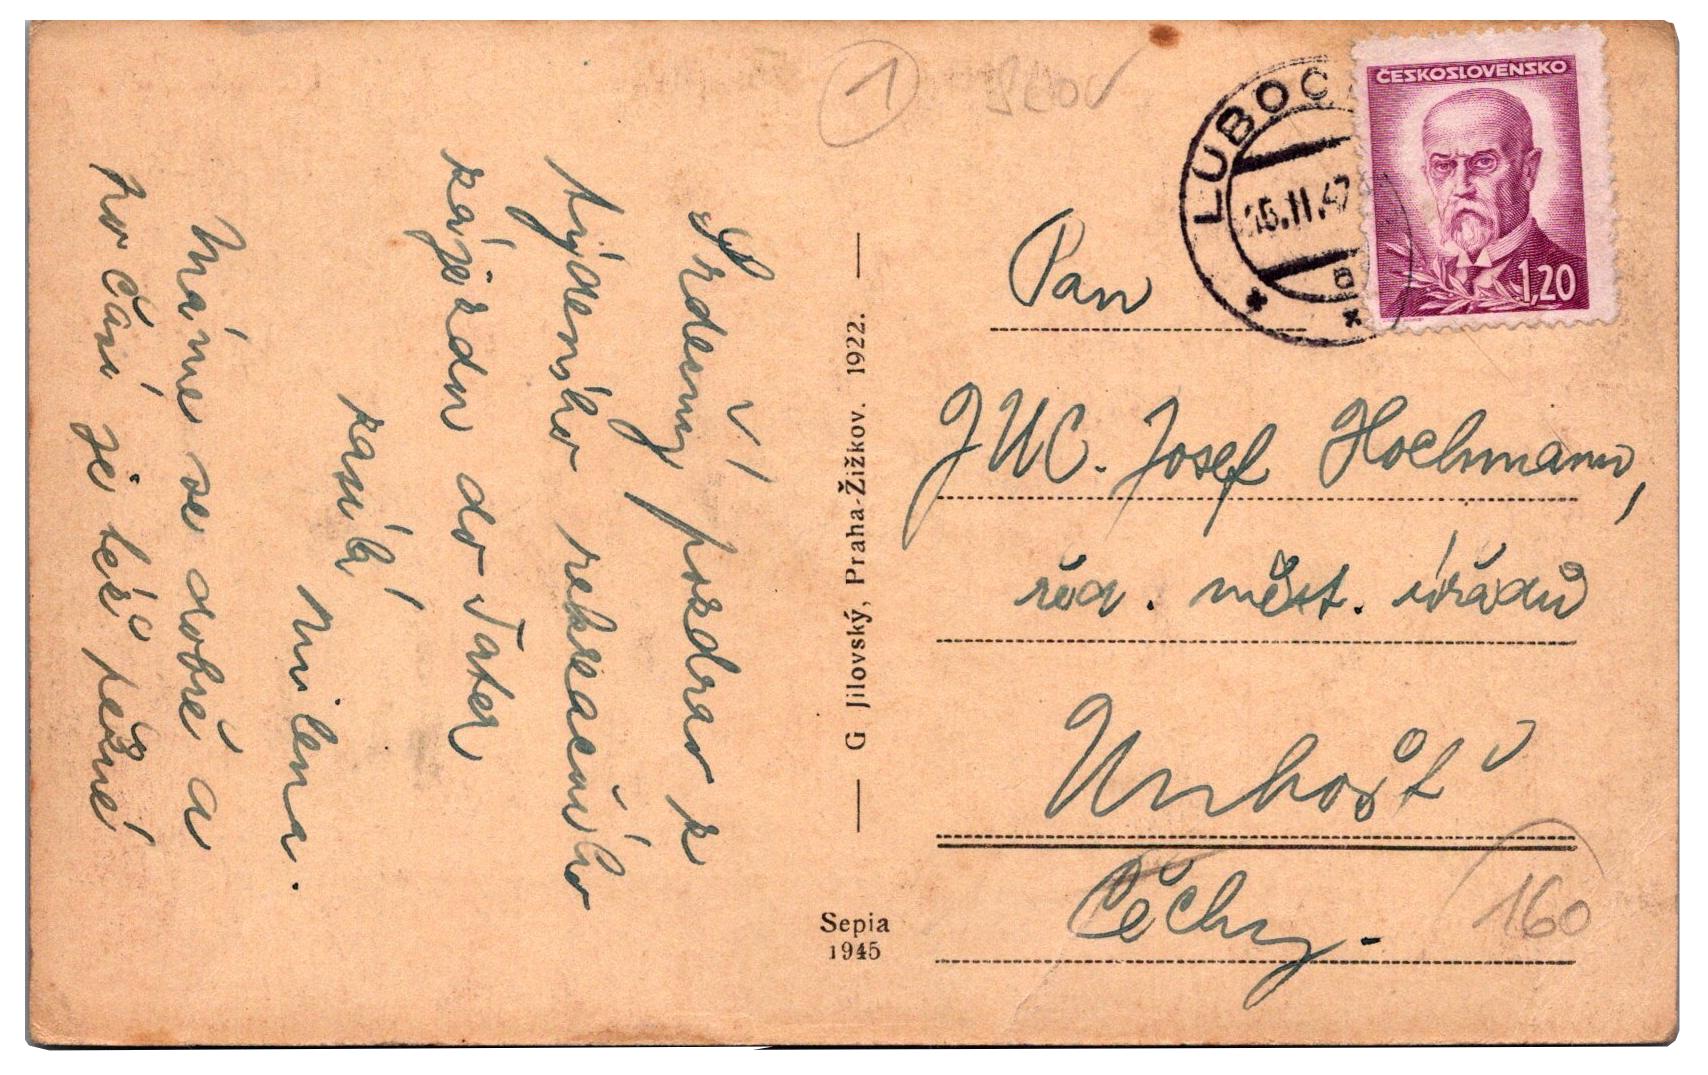 Srdečný pozdrav z
týdenního rekreačního
zájezdu do Tater
zasílá
Milena.
Máme se dobře a
počasí je též pěkné
G Jilovský, Praha-Žižkov. 1922.
Sepia
1945
1
ČESKOSLOVENSKO
1,20
LUBOC
15.II.47
a
Pan
JUC. Josef Hochmann,
řed. měst. úřadů
Unhošť
Čechy.
160